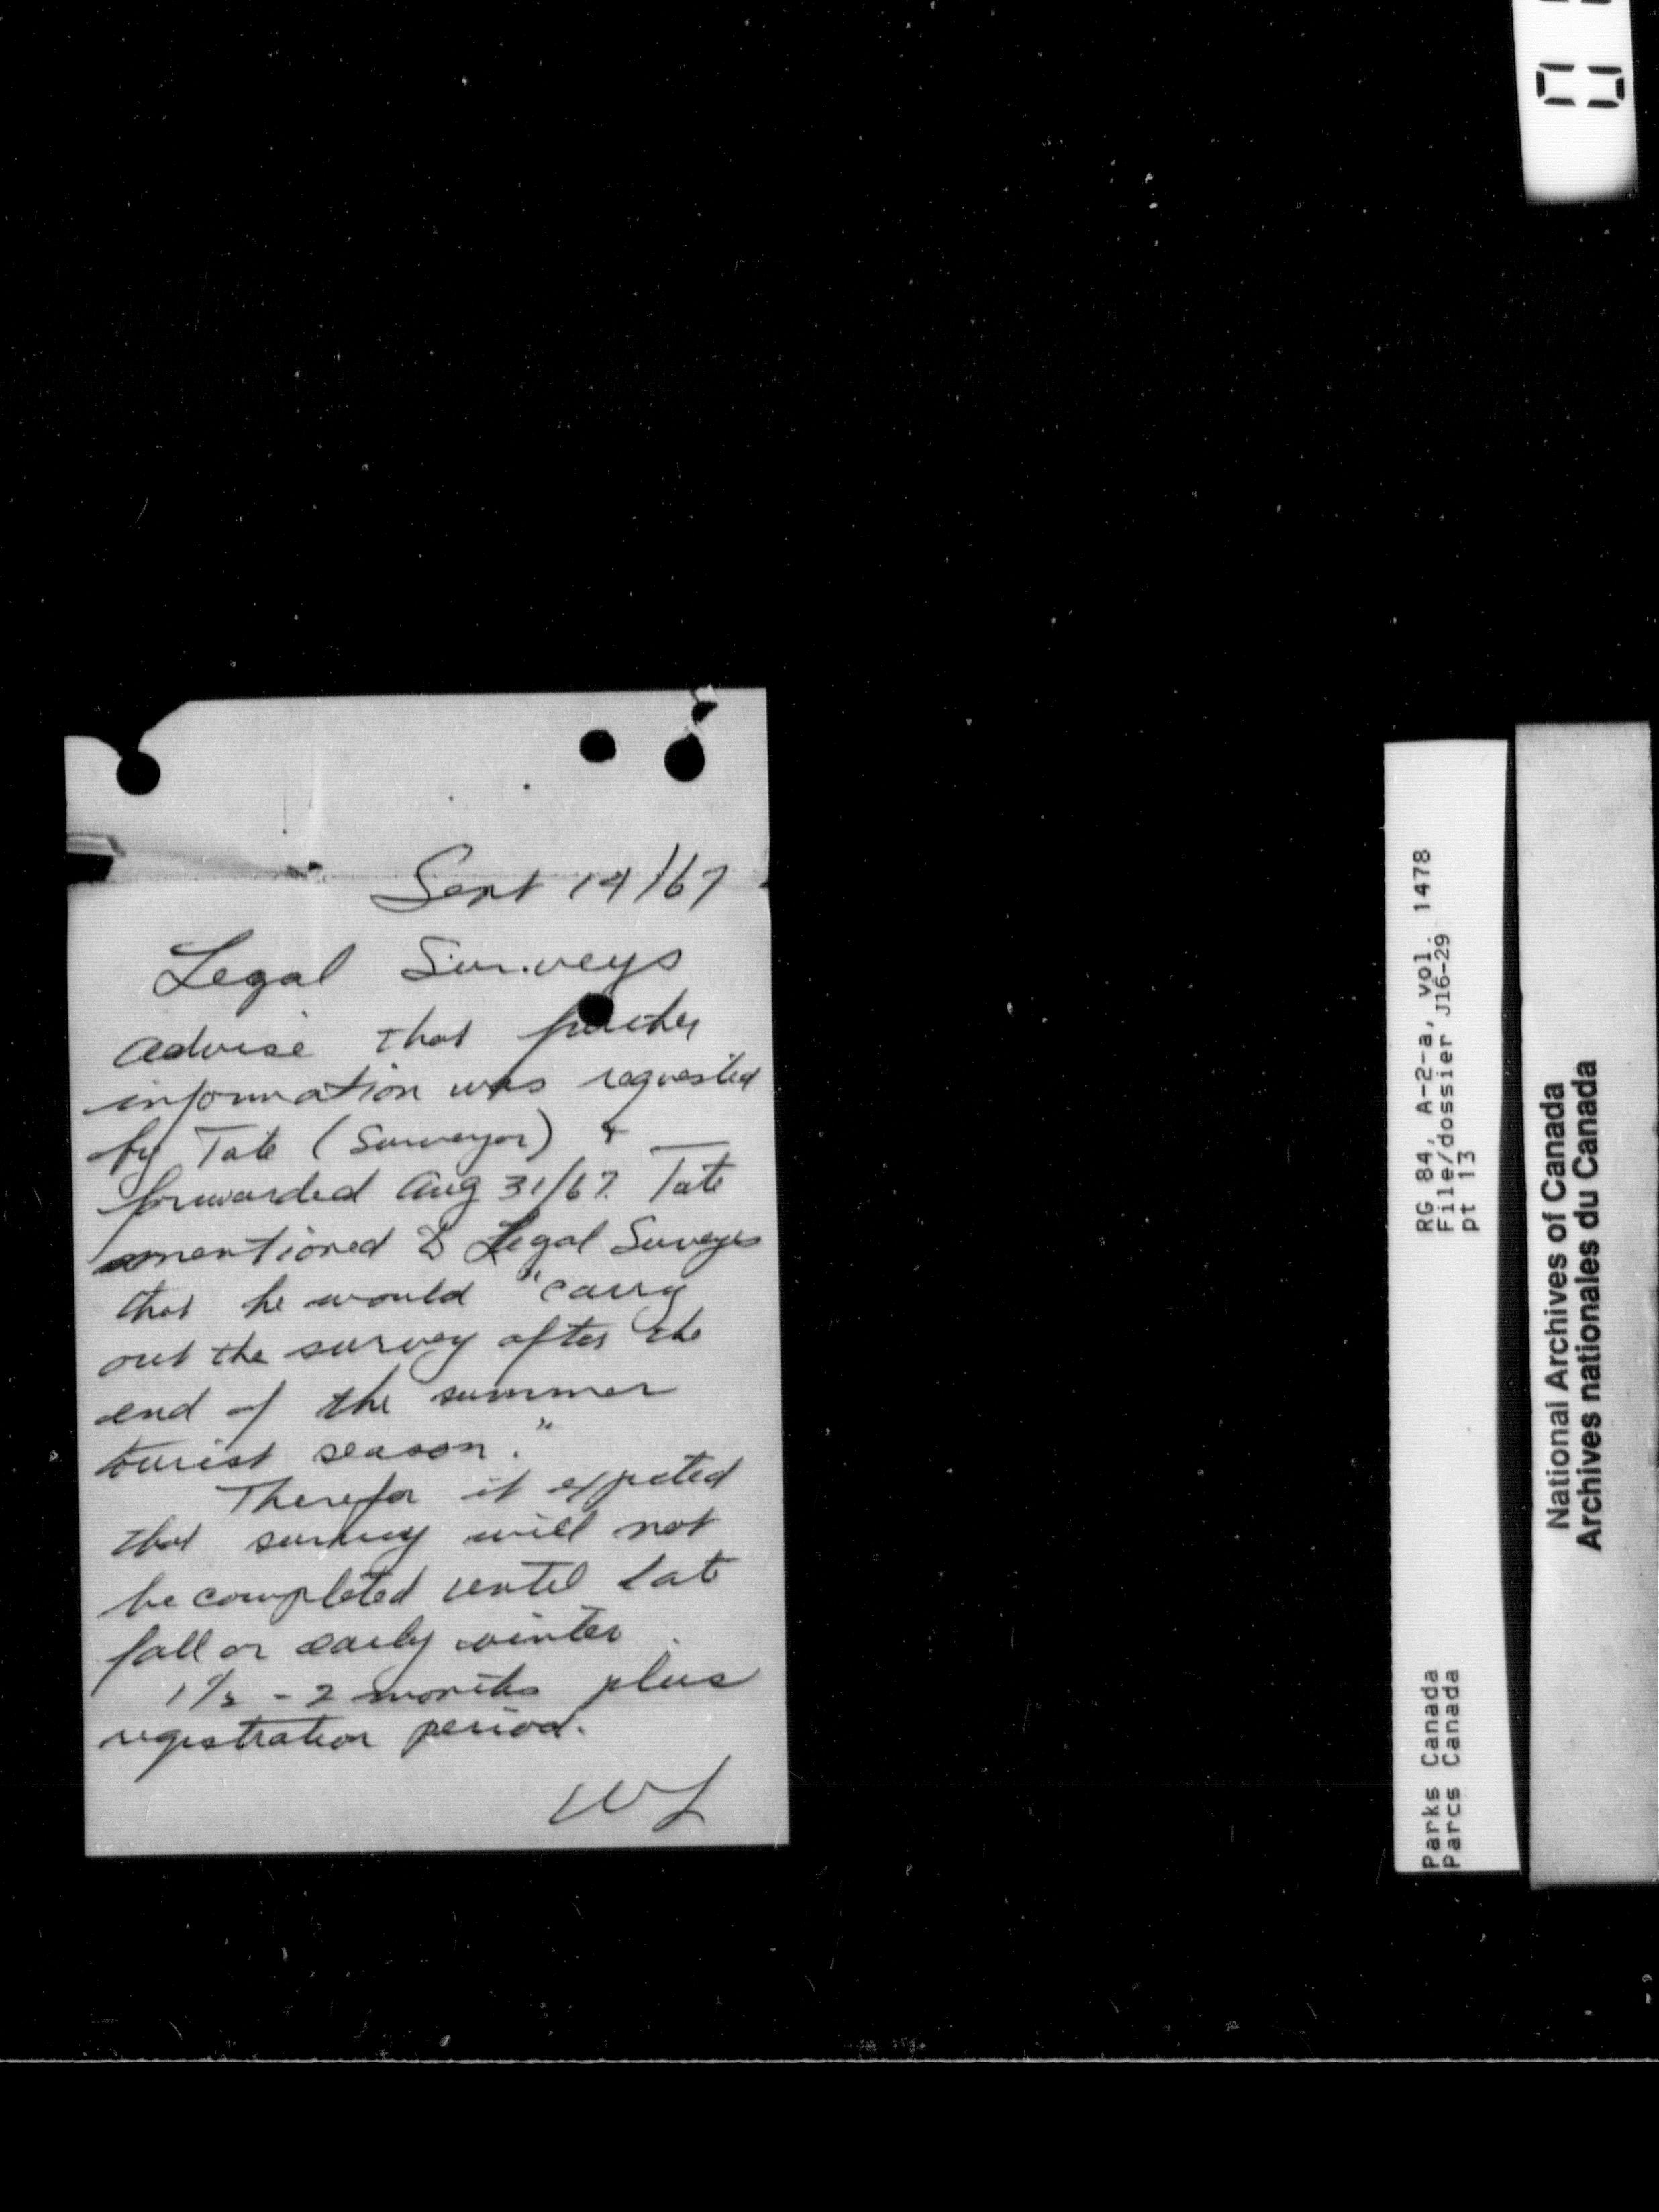 Sept 14/67
Legal Surveys
advise that further
information was requested
by Tate (Surveyor) &
forwarded Aug 31/67. Tate
mentioned to Legal Surveys
that he would "carry
out the survey after the
end of the summer
tourist season."
Therefor it expected
that survey will not
be completed until late
fall or early winter.
1 1/2 - 2 months plus
registration period.
WL
RG 84, A-2-a, vol. 1478
File/dossier J16-29
pt 13
Parks Canada
Parcs Canada
National Archives of Canada
Archives nationales du Canada